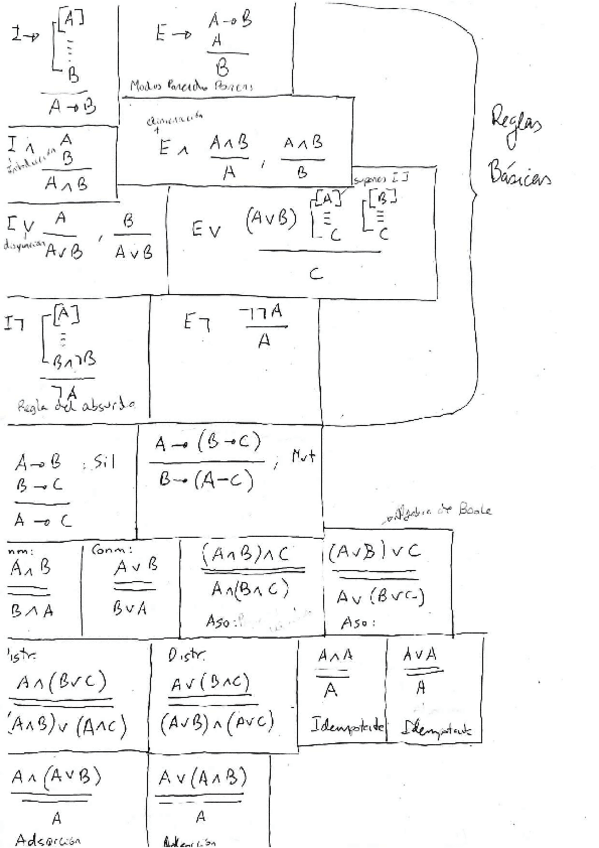 I→ [A]
⋮
B
A → B
E → A → B
A
B
Modus Ponendo Ponens
Reglas
Básicas
I ∧ A
B
A ∧ B
introducción
eliminación
E ∧ A∧B , A∧B
A B
I ∨ A , B
A∨B A∨B
disyunción
supones IJ
E∨ (A∨B) [A] [B]
⋮ ⋮
C C
C
I¬ [A]
⋮
B∧¬B
¬A
Regla del absurdo
E¬ ¬¬A
A
A → B : Sil
B → C
A → C
A → (B → C)
B → (A – C) ; Mut
Algebra de Boole
nm:
A ∧ B
B ∧ A
Conm:
A ∨ B
B ∨ A
(A∧B)∧C
A∧(B∧C)
Aso:
(A∨B)∨C
A∨(B∨C)
Aso:
istr.
A∧(B∨C)
(A∧B)∨(A∧C)
Distr.
A∨(B∧C)
(A∨B)∧(A∨C)
A∧A
A
Idempotente
A∨A
A
Idempotente
A∧(A∨B)
A
Adsorción
A∨(A∧B)
A